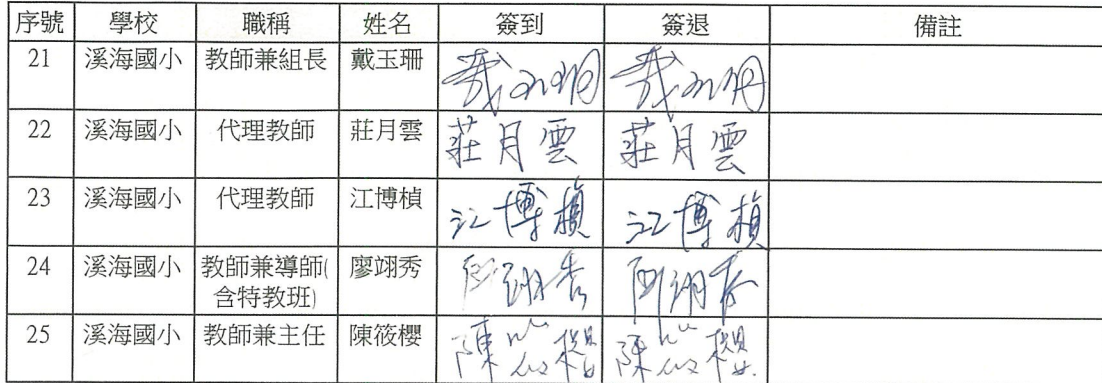 序號 學校 職稱 姓名 簽到 簽退 備註
21 溪海國小 教師兼組長 戴玉珊 戴玉珊 戴玉珊
22 溪海國小 代理教師 莊月雲 莊月雲 莊月雲
23 溪海國小 代理教師 江博楨 江博楨 江博楨
24 溪海國小 教師兼導師( 廖翊秀 廖翊秀 廖翊秀
含特教班)
25 溪海國小 教師兼主任 陳筱櫻 陳筱櫻 陳筱櫻